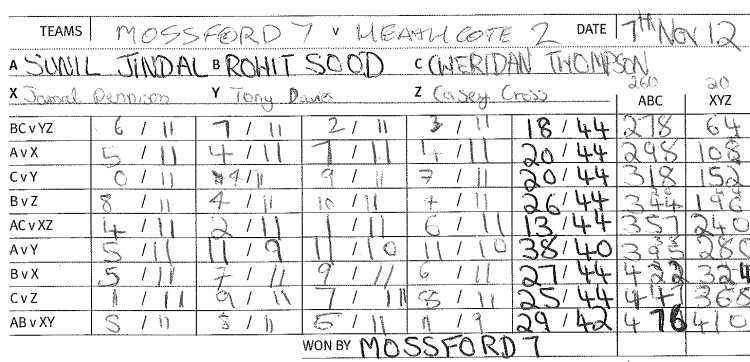 TEAMS MOSSFORD 7 v HEATHCOTE 2 DATE 7th Nov 12
A SUNIL JINDAL B ROHIT SOOD C CWERIDAN THOMPSON
260 20
X Jamal Dennison Y Tony Davies Z Casey Cross ABC XYZ
BC v YZ 6 / 11 7 / 11 2 / 11 3 / 11 18 / 44 278 64
A v X 5 / 11 4 / 11 7 / 11 4 / 11 20 / 44 298 108
C v Y 0 / 11 4 / 11 9 / 11 7 / 11 20 / 44 318 152
B v Z 8 / 11 4 / 11 10 / 11 4 / 11 26 / 44 344 196
AC v XZ 4 / 11 2 / 11 1 / 11 6 / 11 13 / 44 357 240
A v Y 5 / 11 11 / 9 11 / 10 11 / 10 38 / 40 395 280
B v X 5 / 11 7 / 11 9 / 11 6 / 11 27 / 44 422 324
C v Z 1 / 11 9 / 11 7 / 11 8 / 11 25 / 44 447 368
AB v XY 5 / 11 8 / 11 5 / 11 11 / 9 29 / 42 476 410
WON BY MOSSFORD 7